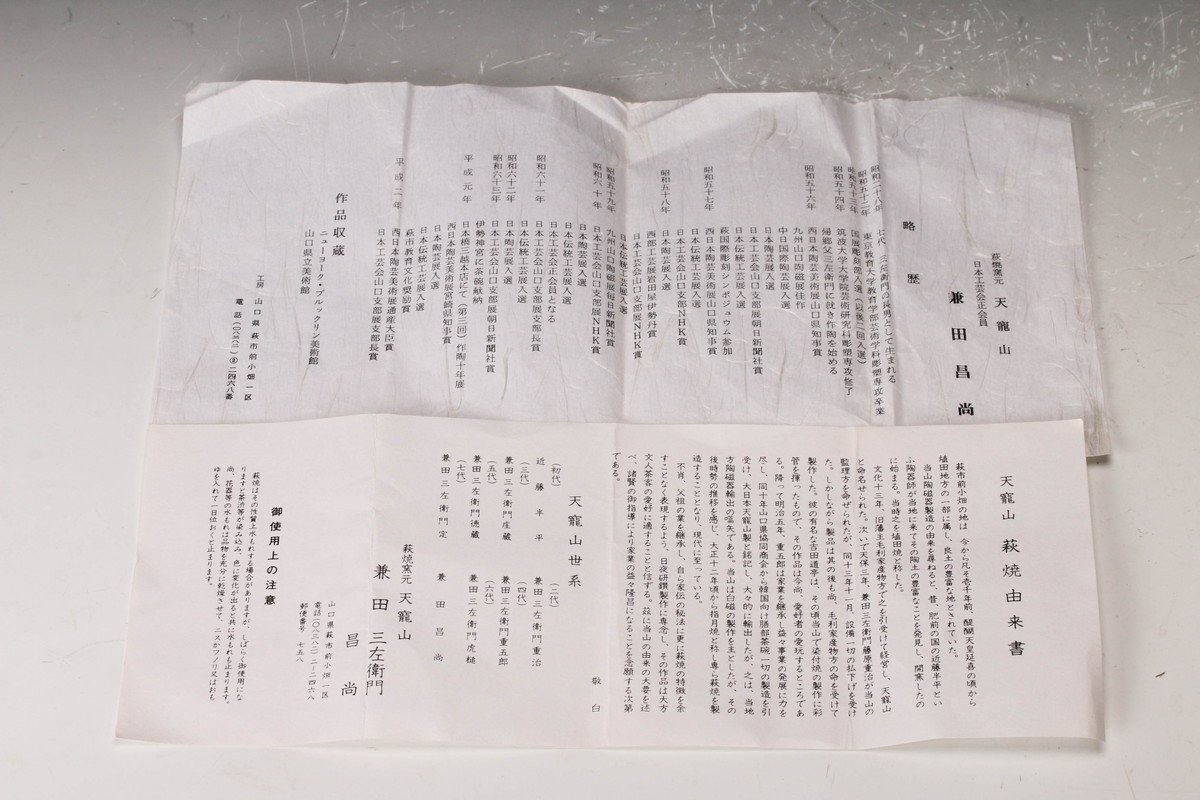 萩焼窯元　天寵山
日本工芸会正会員
兼田昌尚
略歴
昭和二十八年　七代　三左衛門の長男として生まれる
昭和五十二年　東京教育大学教育学部芸術学科彫塑専攻卒業
国展彫刻部入選（以後二回入選）
昭和五十四年　筑波大学大学院芸術研究科彫塑専攻修了
帰郷父三左衛門に就き作陶を始める
昭和五十六年　西日本陶芸美術展山口県知事賞
九州山口陶磁展佳作
中日国際陶芸展入選
日本陶芸展入選
日本工芸会山口支部展朝日新聞社賞
昭和五十七年　西日本陶芸美術展山口県知事賞
萩国際彫刻シンポジュウム参加
日本伝統工芸展入選
日本工芸会山口支部展NHK賞
昭和五十八年　日本陶芸展入選
西部工芸展岩田屋伊勢丹賞
日本工芸会山口支部展NHK賞
日本伝統工芸展入選
昭和五十九年　九州山口陶磁展毎日新聞社賞
昭和六十年　日本工芸会山口支部展NHK賞
日本陶芸展入選
日本伝統工芸展入選
日本工芸会正会員となる
昭和六十一年　日本工芸会山口支部展支部長賞
日本伝統工芸展入選
昭和六十二年　日本陶芸展入選
昭和六十三年　日本工芸会山口支部展朝日新聞社賞
伊勢神宮に茶碗献納
平成元年　日本橋三越本店にて（第三回）作陶十年展
西日本陶芸美術展宮崎県知事賞
日本陶芸展入選
日本伝統工芸展入選
萩市教育文化奨励賞
平成二年　西日本陶芸美術展通産大臣賞
日本工芸会山口支部展支部長賞
作品収蔵
ニューヨーク・ブルックリン美術館
山口県立美術館
工房　山口県萩市前小畑一区
電話（〇八三八二）②二四六八番
天寵山萩焼由来書
萩市前小畑の地は、今から凡そ壱千年前、醍醐天皇延喜の頃から
埴田地方の一部に属し、良土の豊富な地とされていた。
当山陶磁器製造の由来を尋ねると、昔、肥前の国の近藤半平とい
ふ陶器師が当地に来てその陶土の豊富なことを発見し、開窯したの
に始まる。当時之を埴田焼と称した。
文化十三年、旧藩主毛利家産物方で之を引受けて経営し、天寵山
と命名せられた。次いで天保三年、兼田三左衛門藤原重治が当山の
監理方を命ぜられたが、同十三年十一月、設備一切の払下げを受け
た。しかしながら製品は其の後も尚、毛利家産物方の命を受けて
製作した。彼の有名な吉田道亭は、その頃当山で染付焼の製作に彩
管を揮ったもので、その作品は今尚、愛好者の愛玩するところであ
る。降って明治五年、重五郎は家業を継承し益々事業の発展に力を
尽し、同十年山口県協同商会から韓国向け膳部茶碗一切の製造を引
受け、大日本天寵山製と銘記し、大々的に輸出したが、之は、当地
方陶磁器輸出の嚆矢である。当山は白磁の製作を主としたが、その
後時勢の推移を感じ、大正十二年頃から指月焼と称し専ら萩焼を製
造することとなり、現代に至っている。
不肖、父祖の業を継承し、自ら家伝の秘法に更に萩焼の特徴を余
すことなく表現するよう、日夜研鑽製作に専念し、その作品は大方
文人茶客の愛好に適することと信ずる。茲に当山の由来の大要を述
べ、諸賢の御指導により家業の益々隆昌になることを念願する次第
である。
敬白
天寵山世系
（初代）　近藤半平
（二代）　兼田三左衛門重治
（三代）　兼田三左衛門庄蔵
（四代）　兼田三左衛門重五郎
（五代）　兼田三左衛門徳蔵
（六代）　兼田三左衛門虎槌
（七代）　兼田三左衛門定
兼田昌尚
萩焼窯元　天寵山
兼田三左衛門
昌尚
山口県萩市前小畑一区
電話（〇八三八二）二-二四六八
郵便番号　七五八
御使用上の注意
萩焼はその性質上水もれする場合がありますが、しばらく御使用にな
りますと茶渋等が染み込み、色に変化が出ると共に水もれも止まります。
尚、花器等の水もれは品物を充分に乾燥させて、ニスかフノリ又はおも
ゆを入れて一日位おくと止まります。